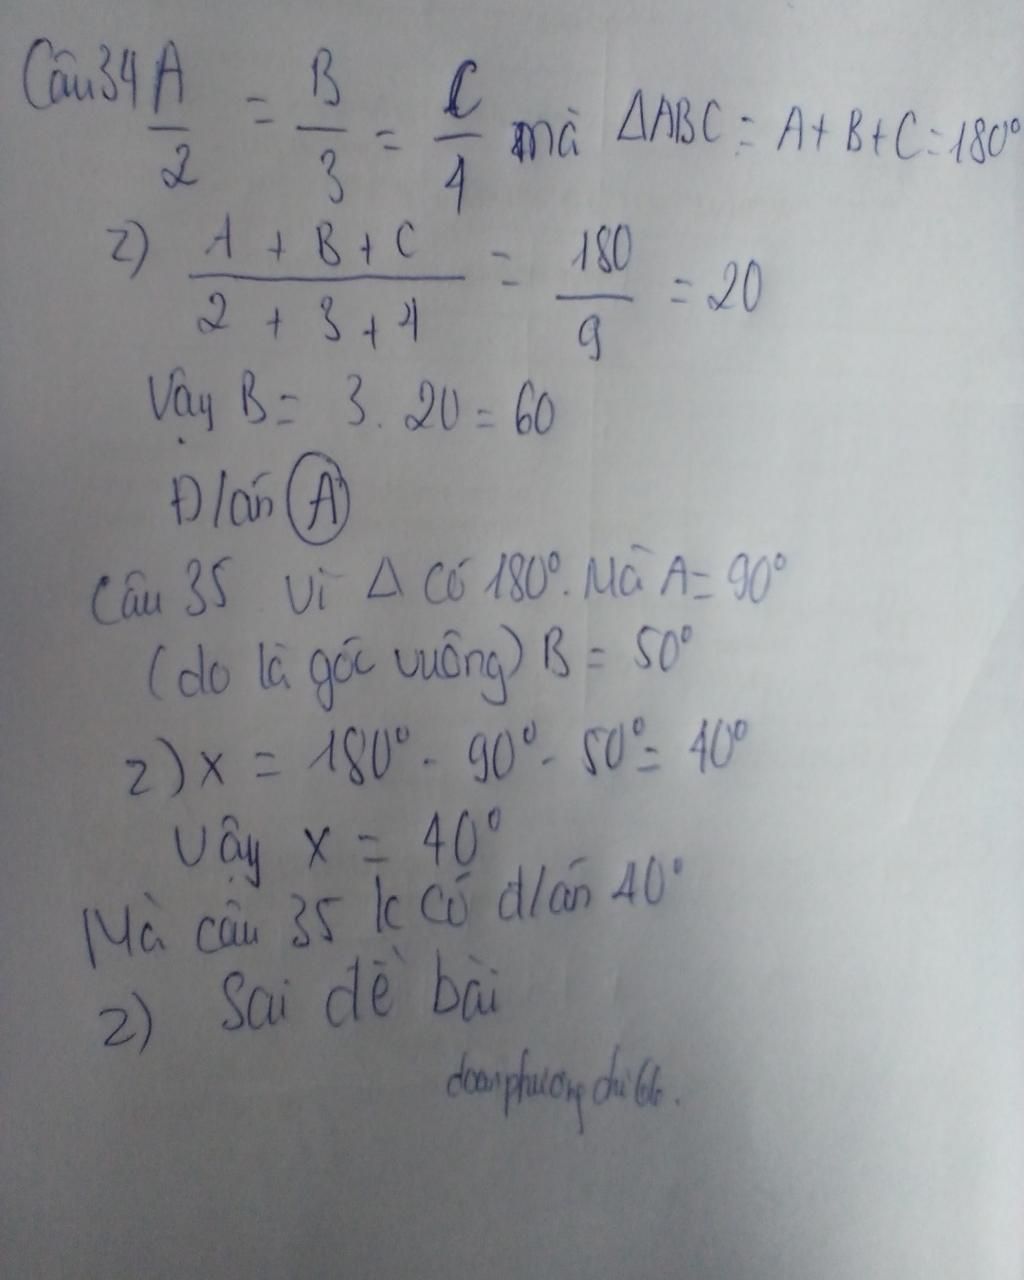 Câu 34 A/2 = B/3 = C/4 mà ΔABC = A + B + C = 180°
2) A + B + C / 2 + 3 + 4 = 180/9 = 20
Vậy B = 3. 20 = 60
Đ/án A
Câu 35 Vì Δ có 180°. Mà A = 90°
(do là góc vuông) B = 50°
2) x = 180° - 90° - 50° = 40°
Vậy x = 40°
Mà câu 35 k có đ/án 40°
2) Sai đề bài
doanphuongchi66.